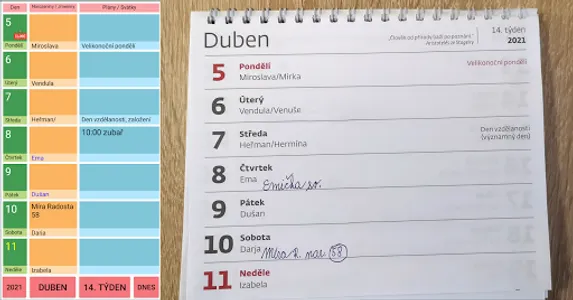 Den Narozeniny / Jmeniny Plány / Svátky
5
Pondělí Miroslava Velikonoční pondělí
6
Úterý Vendula
7
Středa Heřman/ Den vzdělanosti, založení
8 10:00 zubař
Čtvrtek Ema
9
Pátek Dušan
10 Míra Radosta
58
Sobota Darja
11
Neděle Izabela
2021 DUBEN 14. TÝDEN DNES
Duben
14. týden
2021
5 Pondělí Velikonoční pondělí
Miroslava/Mirka
6 Úterý
Vendula/Venuše
7 Středa Den vzdělanosti
Heřman/Hermína (významný den)
8 Čtvrtek
Ema Emička sv.
9 Pátek
Dušan
10 Sobota
Darja Míra R. nar. 58
11 Neděle
Izabela